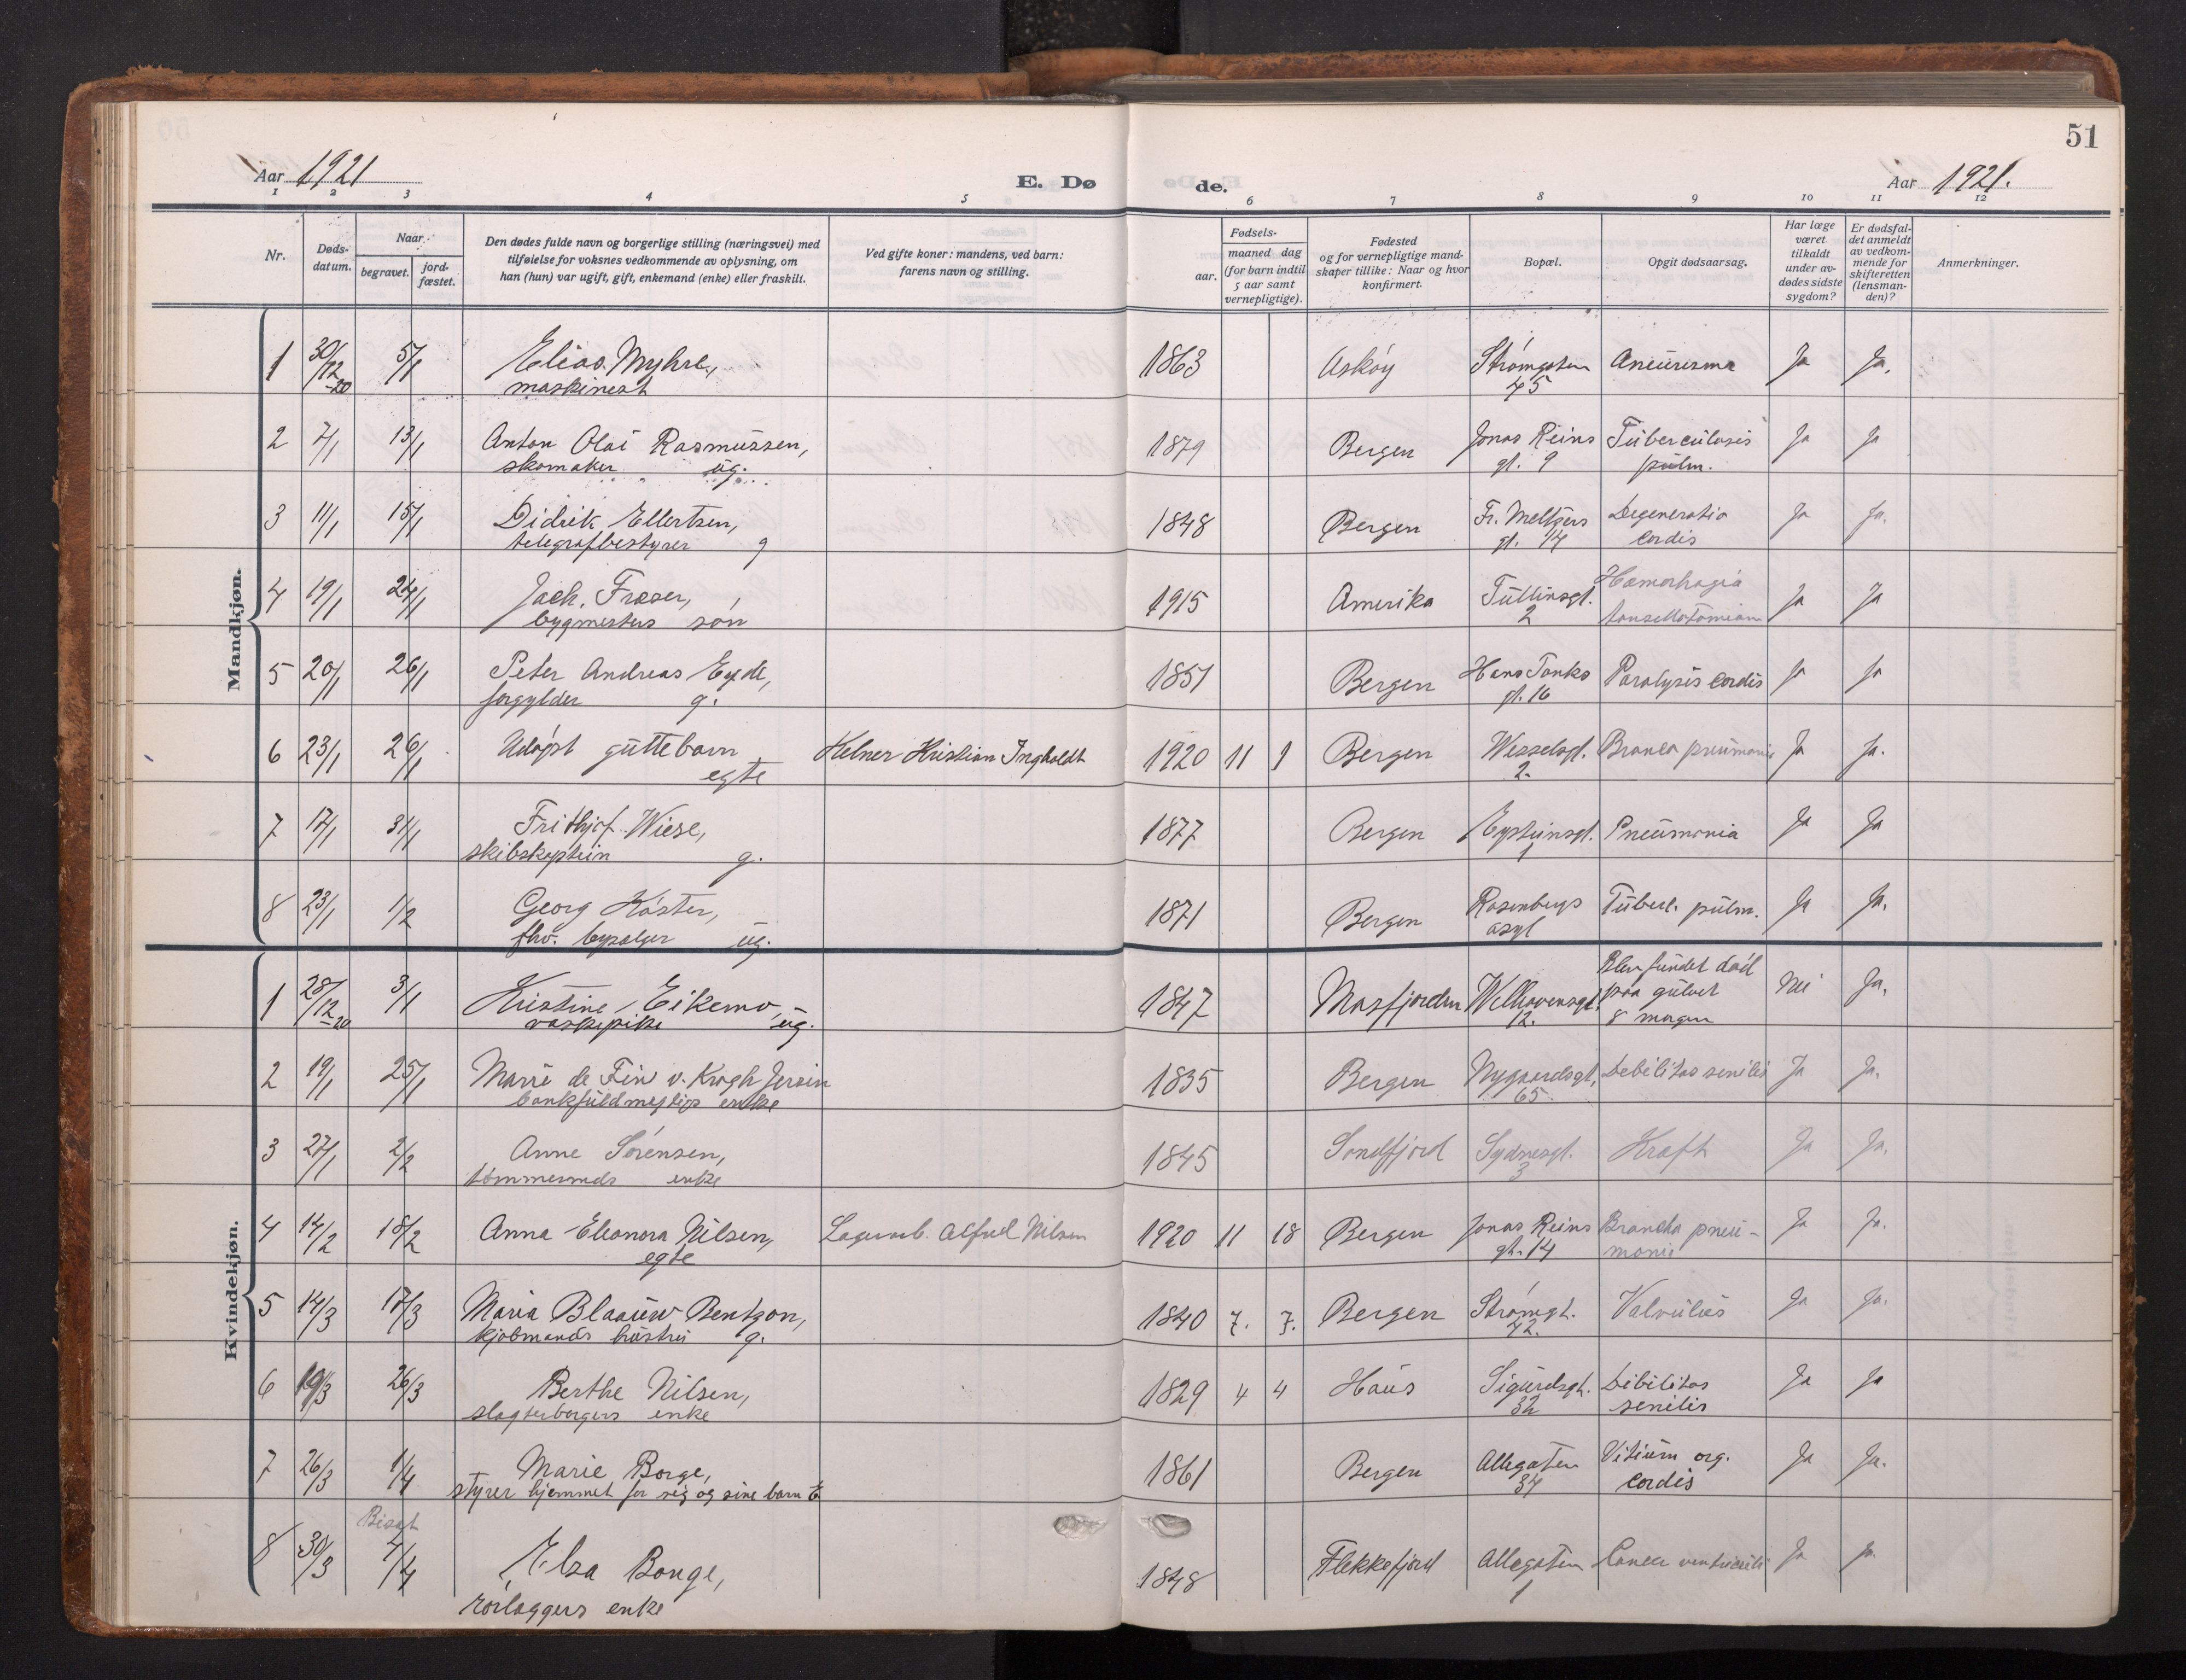 51
Aar 1921
E. Dø de.
Aar 1921.
1 2 3 4 5 6 7 8 9 10 11 12
Nr.
Døds-
datum.
Naar
begravet.
jord-
fæstet.
Den dødes fulde navn og borgerlige stilling (næringsvei) med
tilføielse for voksnes vedkommende av oplysning, om
han (hun) var ugift, gift, enkemand (enke) eller fraskilt.
Ved gifte koner: mandens, ved barn:
farens navn og stilling.
Fødsels-
aar.
maaned dag
(for barn indtil
5 aar samt
vernepligtige).
Fødested
og for vernepligtige mand-
skaper tillike: Naar og hvor
konfirmert.
Bopæl.
Opgit dødsaarsag.
Har læge
været
tilkaldt
under av-
dødes sidste
sygdom?
Er dødsfal-
det anmeldt
av vedkom-
mende for
skifteretten
(lensman-
den)?
Anmerkninger.
Mandkjøn.
1 30/12-20 5/1 Elias Myhre, 1863 Askøy Strømgaten Aneurisma Ja Ja.
maskinist 45
2 7/1 13/1 Anton Olai Rasmussen, 1879 Bergen Jonas Reins Tuberculosis Ja Ja
skomaker ug. gt. 9 pulm.
3 11/1 15/1 Didrik Ellertsen, 1848 Bergen Fr. Meltzers Degeneratio Ja Ja.
telegrafbestyrer g gt. 14 cordis
4 19/1 24/1 Jack. Fraser, 1915 Amerika Tullinsgt. Hæmorhagia Ja Ja
bygmesters søn 2
5 20/1 26/1 Peter Andreas Eyde, 1851 Bergen Hans Tanks Paralysis cordis Ja Ja
forgylder g. gt. 16
6 23/1 26/1 Udøpt guttebarn Kelner Kristian Ingholdt 1920 11 9 Bergen Wesselsgt. Bronco pneumonie Ja Ja.
egte 2.
7 17/1 31/1 Frithjof Wiese, 1877 Bergen Eysteinsgt. Pneumonia Ja Ja
skibskaptein g. 1
8 23/1 1/2 Georg Köster, 1871 Bergen Rosenbergs Tuberl. pulm. Ja Ja.
fhv. bysælger ug. asyl
Kvindekjøn.
1 28/12-20 3/1 Kristine Eikemo, 1847 Masfjorden Welhavensgt. Blev fundet død Nei Ja.
vaskepike ug. 12. paa gulvet
8 morgen
2 19/1 25/1 Marie de Fine v. Krogh Jersin 1835 Bergen Nygaardsgt. Debilitas senilis Ja Ja.
bankfuldmegtigs enke 65
3 27/1 2/2 Anne Sørensen, 1845 Søndfjord Sydnesgt. Kræft Ja Ja.
tømmermds enke 3
4 14/2 18/2 Anna Eleonora Nilsen, Lagerarb. Alfred Nilsen 1920 11 18 Bergen Jonas Reins Broncho pneu- Ja Ja.
egte gt. 14 monie
5 14/3 17/3 Maria Blaauw Bentzon, 1840 7. 7. Bergen Strømgt. Ja Ja.
kjøbmands hustru g. 42.
6 19/3 26/3 Berthe Nilsen, 1829 4 4 Haus Sigurdsgt. Debilitas Ja Ja
slagterborgers enke 32 senilis
7 26/3 1/4 Marie Borge, 1861 Bergen Allegaten Vitium org. Ja Ja.
styrer hjemmet for sig og sine barn E 34 cordis
8 30/3 Bisat 4/4 Elsa Bonge, 1848 Flekkefjord Allegaten Cancer ventriculi Ja Ja.
rørlæggers enke 1